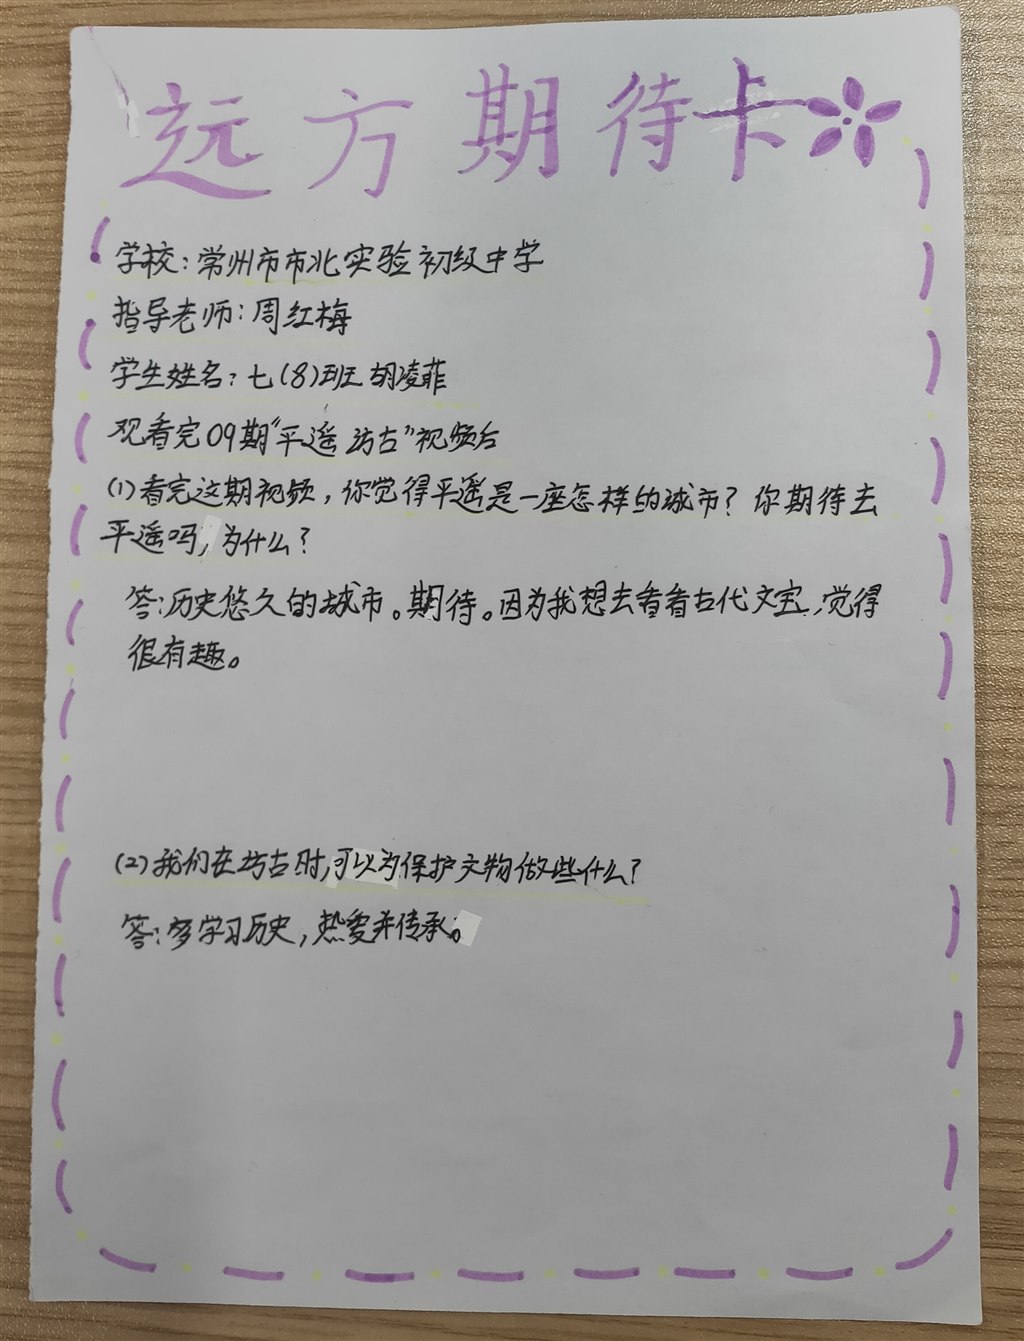 远方期待卡
学校：常州市市北实验初级中学
指导老师：周红梅
学生姓名：七(8)班 胡凌菲
观看完09期“平遥 访古”视频后
(1)看完这期视频，你觉得平遥是一座怎样的城市？你期待去
平遥吗，为什么？
答：历史悠久的城市。期待。因为我想去看看古代文宝，觉得
很有趣。
(2)我们在访古时，可以为保护文物做些什么？
答：多学习历史，热爱并传承。